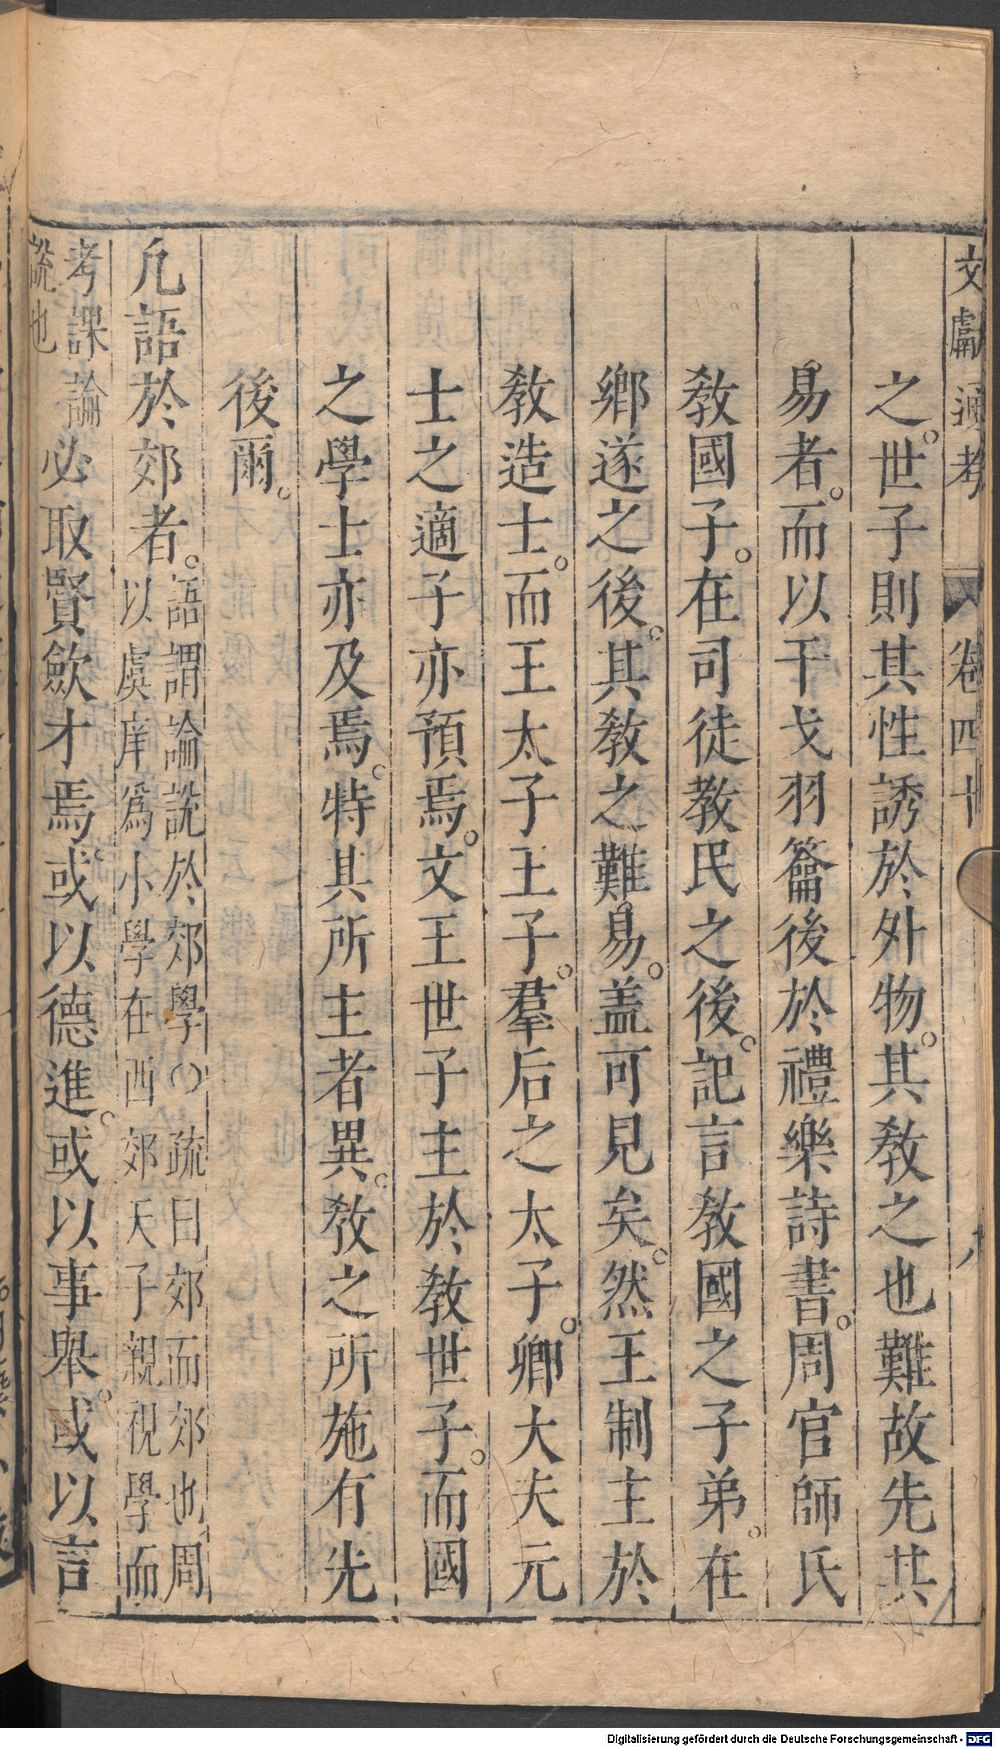 文獻通考　卷四十　九
之。世子則其性誘於外物。其教之也難故先其
易者。而以干戈羽籥後於禮樂詩書。周官師氏
教國子。在司徒教民之後。記言教國之子弟。在
鄉遂之後。其教之難易。盖可見矣。然王制主於
教造士。而王太子王子。羣后之太子。卿大夫元
士之適子亦預焉。文王世子主於教世子。而國
之學士亦及焉。特其所主者異。教之所施有先
後爾。
凡語於郊者。語謂論說於郊學〇疏曰郊西郊也周
以虞庠為小學在西郊天子親視學而
考課論
說也
必取賢斂才焉。或以德進。或以事舉。或以言
Digitalisierung gefördert durch die Deutsche Forschungsgemeinschaft - DFG